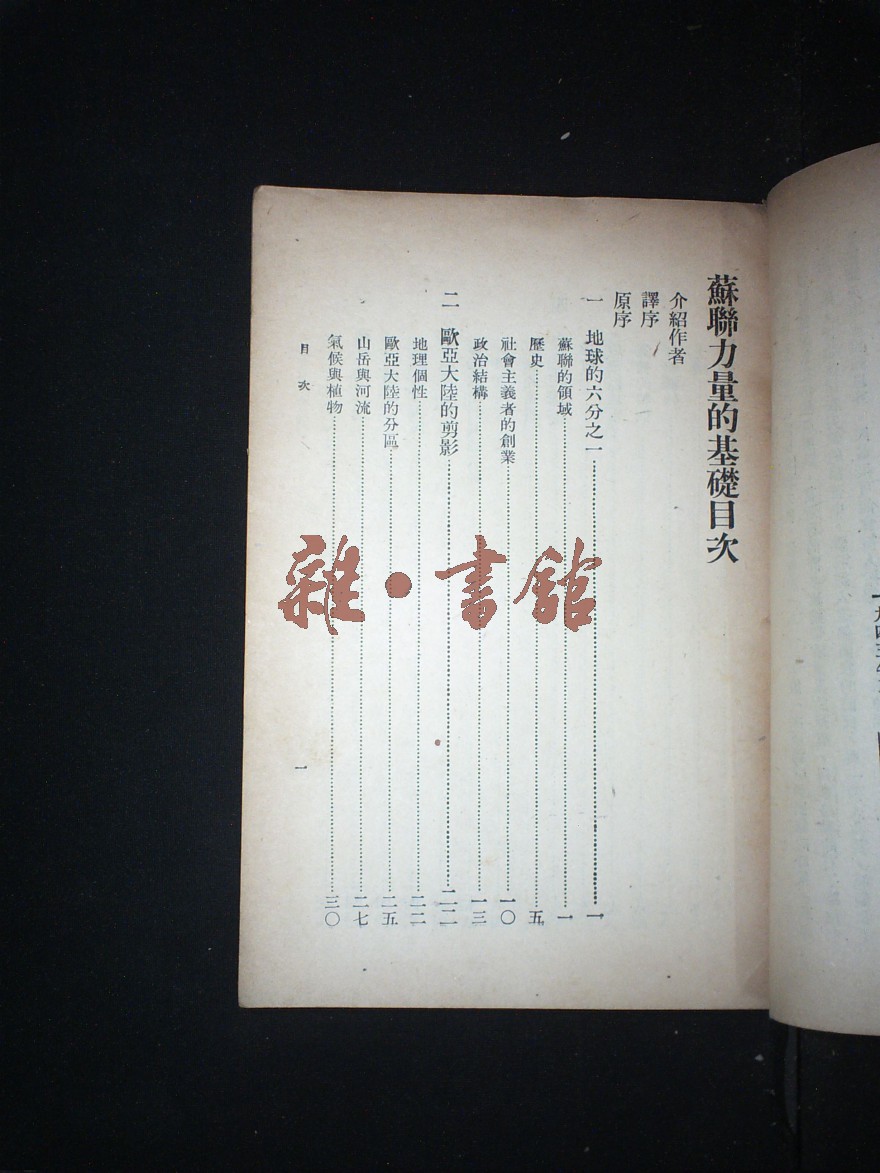 蘇聯力量的基礎目次
介紹作者
譯序
原序
一 地球的六分之一 一
蘇聯的領域 一
歷史 五
社會主義者的創業 一〇
政治結構 一三
二 歐亞大陸的剪影 二二
地理個性 二二
歐亞大陸的分區 二五
山岳與河流 二七
氣候與植物 三〇
目次
一
雜·書館